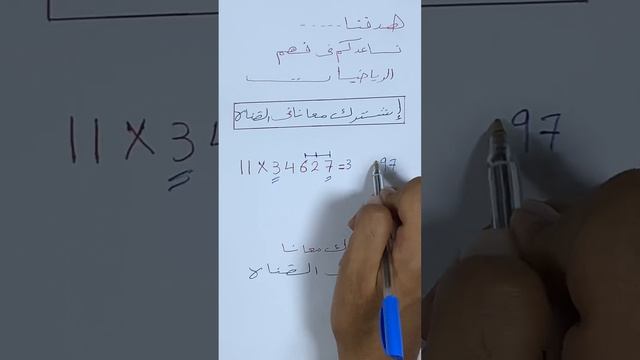 هدفنا.....
نساعدكم فى فهم
الرياضيات
إشترك معانا فى القناة
11×34627=3 97
ك معانا
القناة